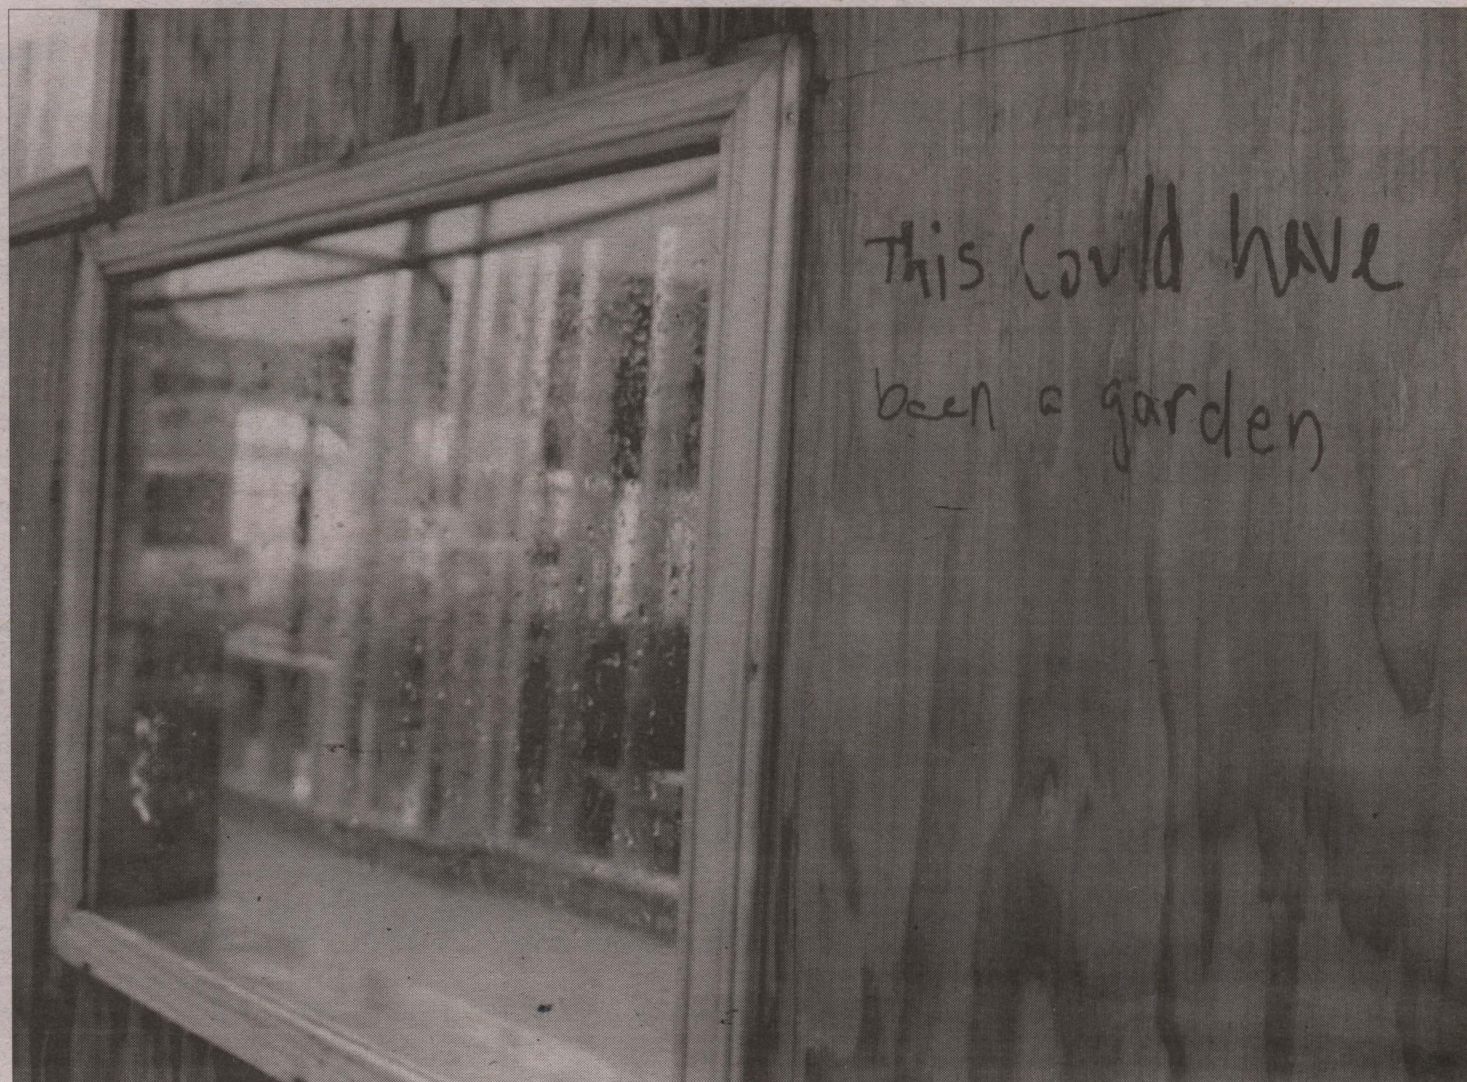 This could have
been a garden